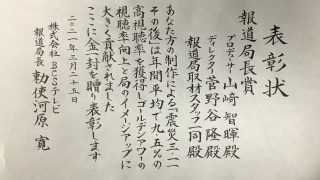 表彰状
報道局長賞
プロデューサー 山崎智暉殿
ディレクター 菅野谷隆殿
報道局取材スタッフ一同殿
あなた方の制作による「震災三・一一
その後」は年間平均で九・五％の
高視聴率を獲得しゴールデンアワーの
視聴率向上と局のイメージアップに
大きく貢献されました
ここに金一封を贈り表彰します
二〇二一年三月二十五日
株式会社 BCSテレビ
報道局長 勅使河原 寛